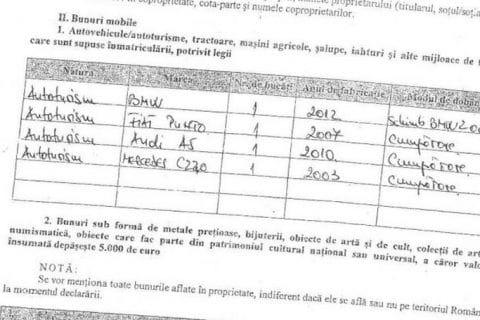 coproprietate, cota-parte și numele coproprietarilor.
II. Bunuri mobile
1. Autovehicule/autoturisme, tractoare, mașini agricole, șalupe, iahturi și alte mijloace de
care sunt supuse înmatriculării, potrivit legii
Natura Marca Nr. de bucăți Anul de fabricație Modul de
Autoturism BMW 1 2012 Schimb BMW
Autoturism FIAT PUNTO 1 2007 Cumpărare
Autoturism Audi A5 1 2010 Cumpărare
Autoturism MERCEDES 1 2003 Cumpărare
2. Bunuri sub formă de metale prețioase, bijuterii, obiecte de artă și de cult, colecții de
numismatică, obiecte care fac parte din patrimoniul cultural național sau universal, a căror
însumată depășește 5.000 de euro
NOTĂ:
Se vor menționa toate bunurile aflate în proprietate, indiferent dacă ele se află sau nu pe teritoriul
la momentul declarării.